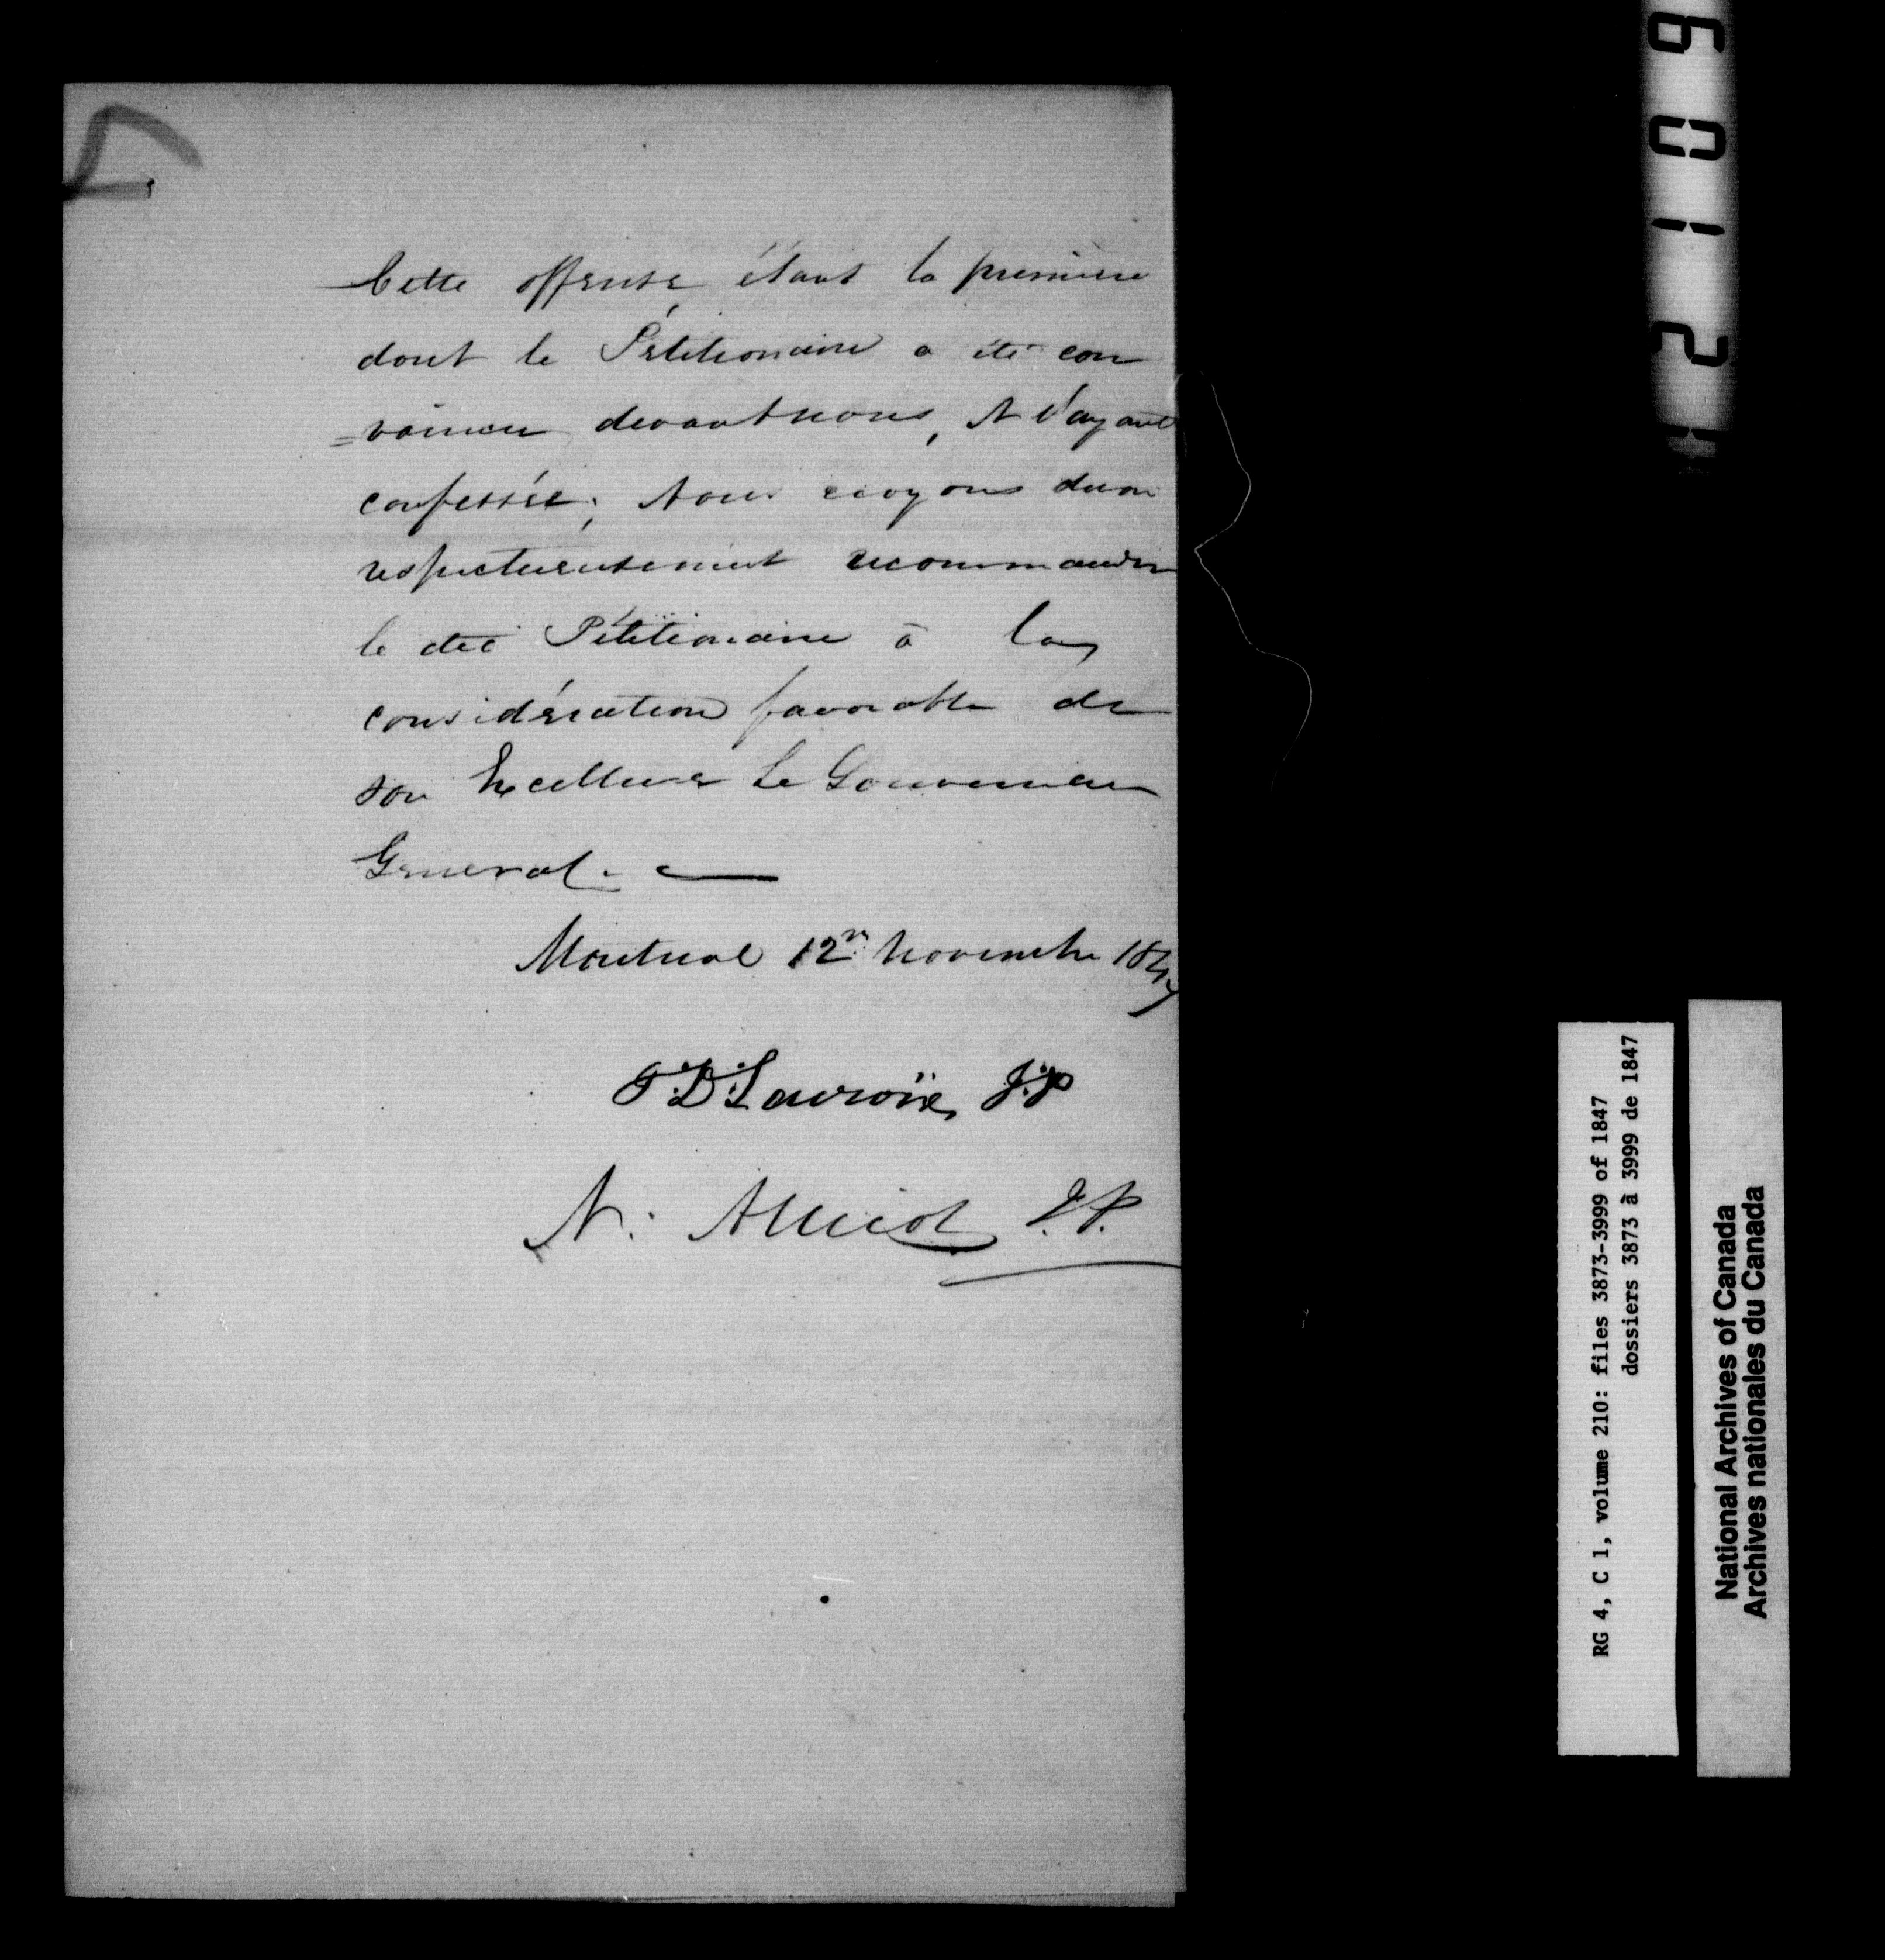 Cette offense, étant la première
dont le Petitionaire a été con
=vaincu devant nous, & l'ayant
confessée; Nous croyons devoir
respectueusement recommander
le dit Pétitionaire à la
considération favorable de
son Excellence Le Gouverneur
General. —
Montreal 12 Novembre 1847
J.P
N. J.P.
6012
RG 4, C 1, volume 210: files 3873-3999 of 1847
dossiers 3873 à 3999 de 1847
National Archives of Canada
Archives nationales du Canada